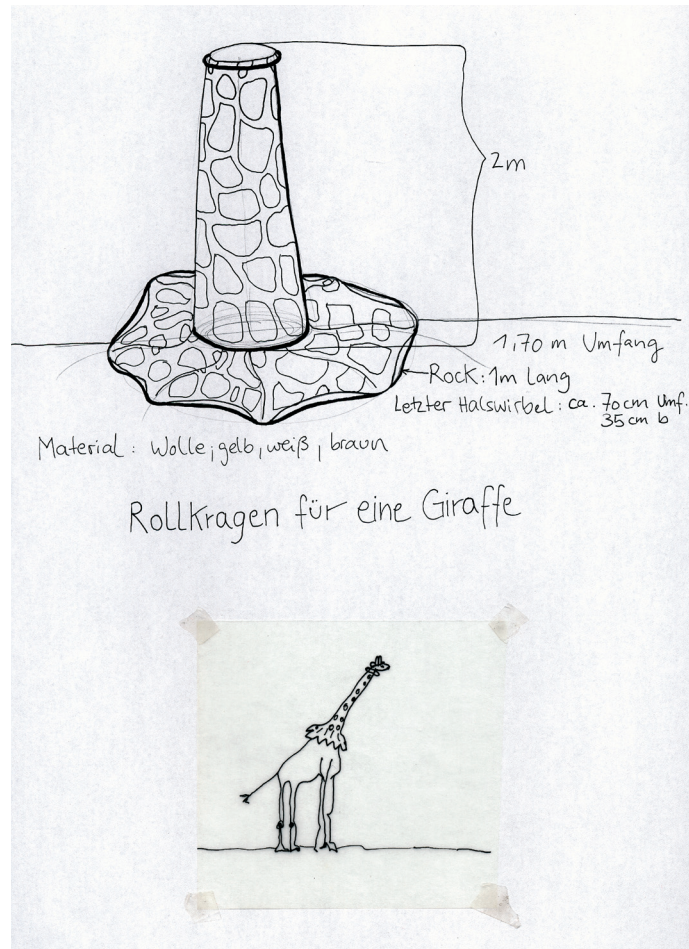 2m
1,70 m Umfang
Rock: 1m lang
Letzter Halswirbel: ca. 70cm Umf.
35cm b
Material: Wolle, gelb, weiß, braun
Rollkragen für eine Giraffe